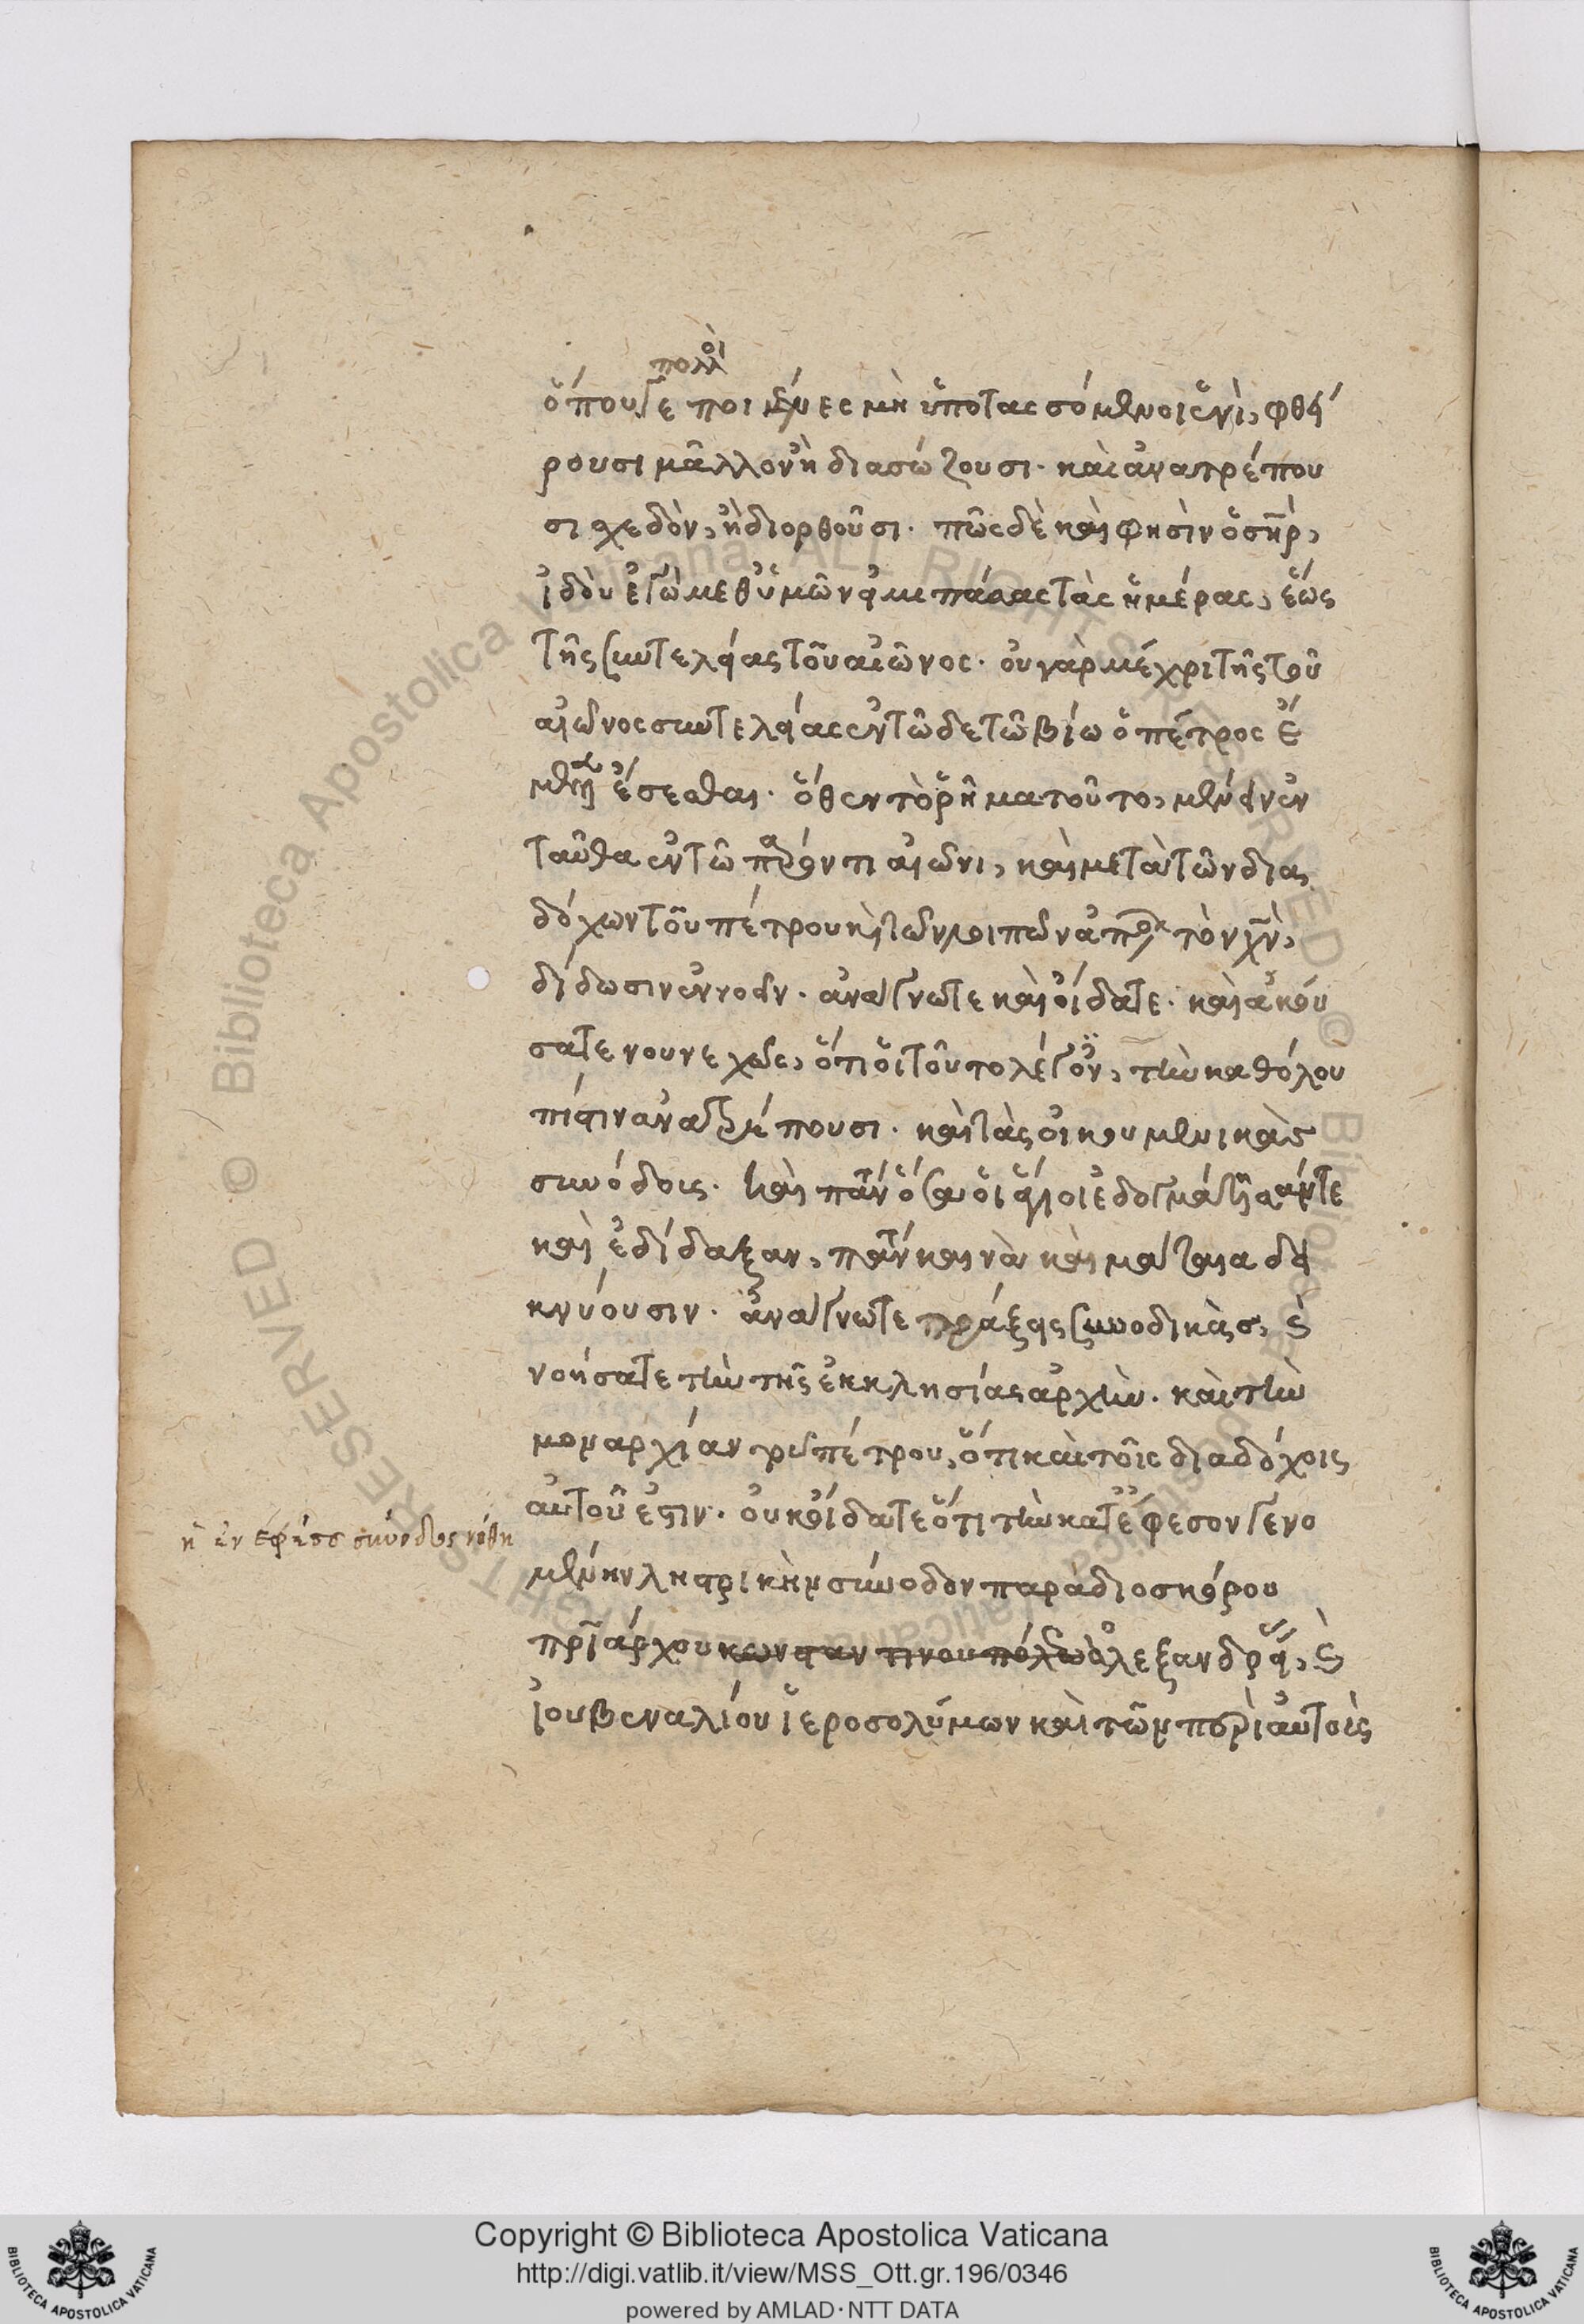 πολλοὶ
ὅπουγε ποιμένες μὴ ὑποτασσόμενοι ἑνὶ, φθεί
ρουσι μᾶλλον ἢ διασώζουσι. καὶ ἀνατρέπου
σι σχεδὸν, ἢ διορθοῦσι. πῶς δὲ καὶ φησὶν ὁ σηρ,
ἰδοὺ ἐγὼ μεθ ὑμῶν εἰμι πάσας τὰς ἡμέρας, ἕως
τῆς συντελείας τοῦ αἰῶνος. οὐ γὰρ μέχρι τῆς τοῦ
αἰῶνος συντελείας ἐν τῶδε τῶ βίω ὁ πέτρος ἔ
ἔσεσθαι. ὅθεν τὸ ῥῆμα τοῦτο, μένειν ἐν
ταῦθα ἐν τῶ παρόντι αἰῶνι, καὶ μετὰ τῶν δια
δόχων τοῦ πέτρου κὶ τῶν λοιπῶν ἀποστόλων τὸν χν,
δίδωσιν ἐννοεῖν. ἀναγνωτε καὶ οἴδατε. καὶ ἀκού
σατε νουνεχῶς, ὅτι οἱ τοῦτο λέγοντες, τὴν καθόλου
πίστιν ἀνατρέπουσι. καὶ τὰς οἰκουμενικὰς
συνόδους. καὶ πάντα ὅσα οἱ ἅγιοι ἐδογμάτισάντε
καὶ ἐδίδαξαν, πάντα κενὰ καὶ μάταια δει
κνύουσιν. ἀναγνωτε πράξεις συνοδικὰς, ϛ
νοήσατε τὴν τῆς ἐκκλησίας ἀρχὴν. καὶ τὴν
μοναρχίαν τοῦ πέτρου, ὅτι καὶ τοῖς διαδόχοις
αὐτοῦ ἐστιν. οὐκ οἴδατε ὅτι τὴν κατ ἔφεσον γενο
μένην ληστρικὴν σύνοδον παρὰ διοσκόρου
πριάρχου κωνσταντινουπόλεως ἀλεξανδρείας, ϛ
ἰουβεναλίου ἱεροσολύμων καὶ τῶν περὶ αὐτοὺς
ἡ ἐν ἐφέσω σύνοδος νόθη
Copyright © Biblioteca Apostolica Vaticana
http://digi.vatlib.it/view/MSS_Ott.gr.196/0346
powered by AMLAD·NTT DATA
BIBLIOTECA APOSTOLICA VATICANA
BIBLIOTECA APOSTOLICA VATICANA